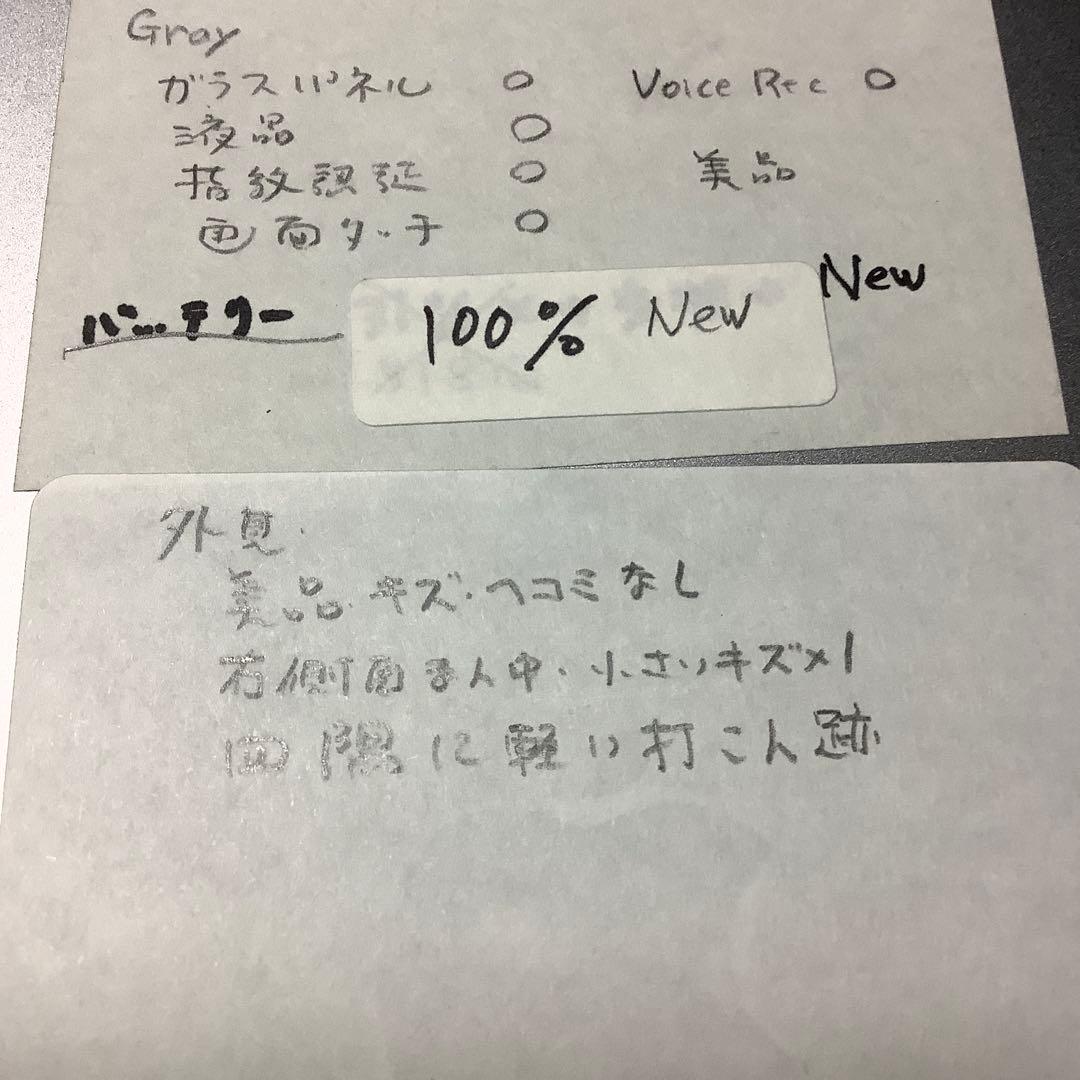 Gray
ガラスパネル ○ Voice Rec ○
液晶 ○
指紋認証 ○ 美品
画面タッチ ○
バッテリー 100% New New
外見.
美品. キズ・ヘコミなし
右側面まん中. 小さいキズ×1
四隅に軽い打こん跡